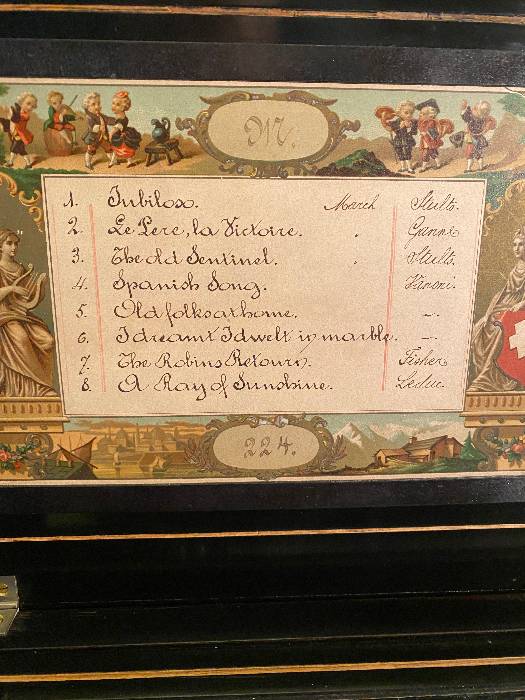 M.
1. Jubilox. March Stults.
2. Le Pere, la Victoire. " Ganne
3. The old Sentinel. " Stults.
4. Spanish Song. Vanoni.
5. Old folks at home. -.
6. I dreamt I dwelt in marble. -.
7. The Robins Retourn. Fisher
8. A Ray of Sunshine. Leduc.
224.